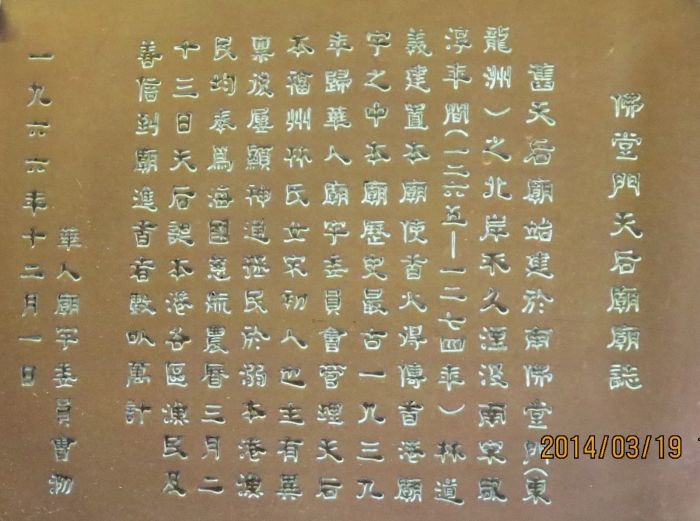 佛堂門天后廟廟誌
舊天后廟始建於南佛堂門(東
龍洲)之北岸不久湮沒南宋咸
淳年間(一二六五—一二七四年)林道
義建置本廟使香火得傳香港廟
宇之中本廟歷史最古一九三九
年歸華人廟宇委員會管理天后
本福州林氏女宋初人也生有異
稟後屢顯神通拯民於溺本港漁
民均奉爲海國慈航農曆三月二
十三日天后誕本港各區漁民及
善信到廟進香者數以萬計
華人廟宇委員會泐
一九六六年十二月一日
2014/03/19